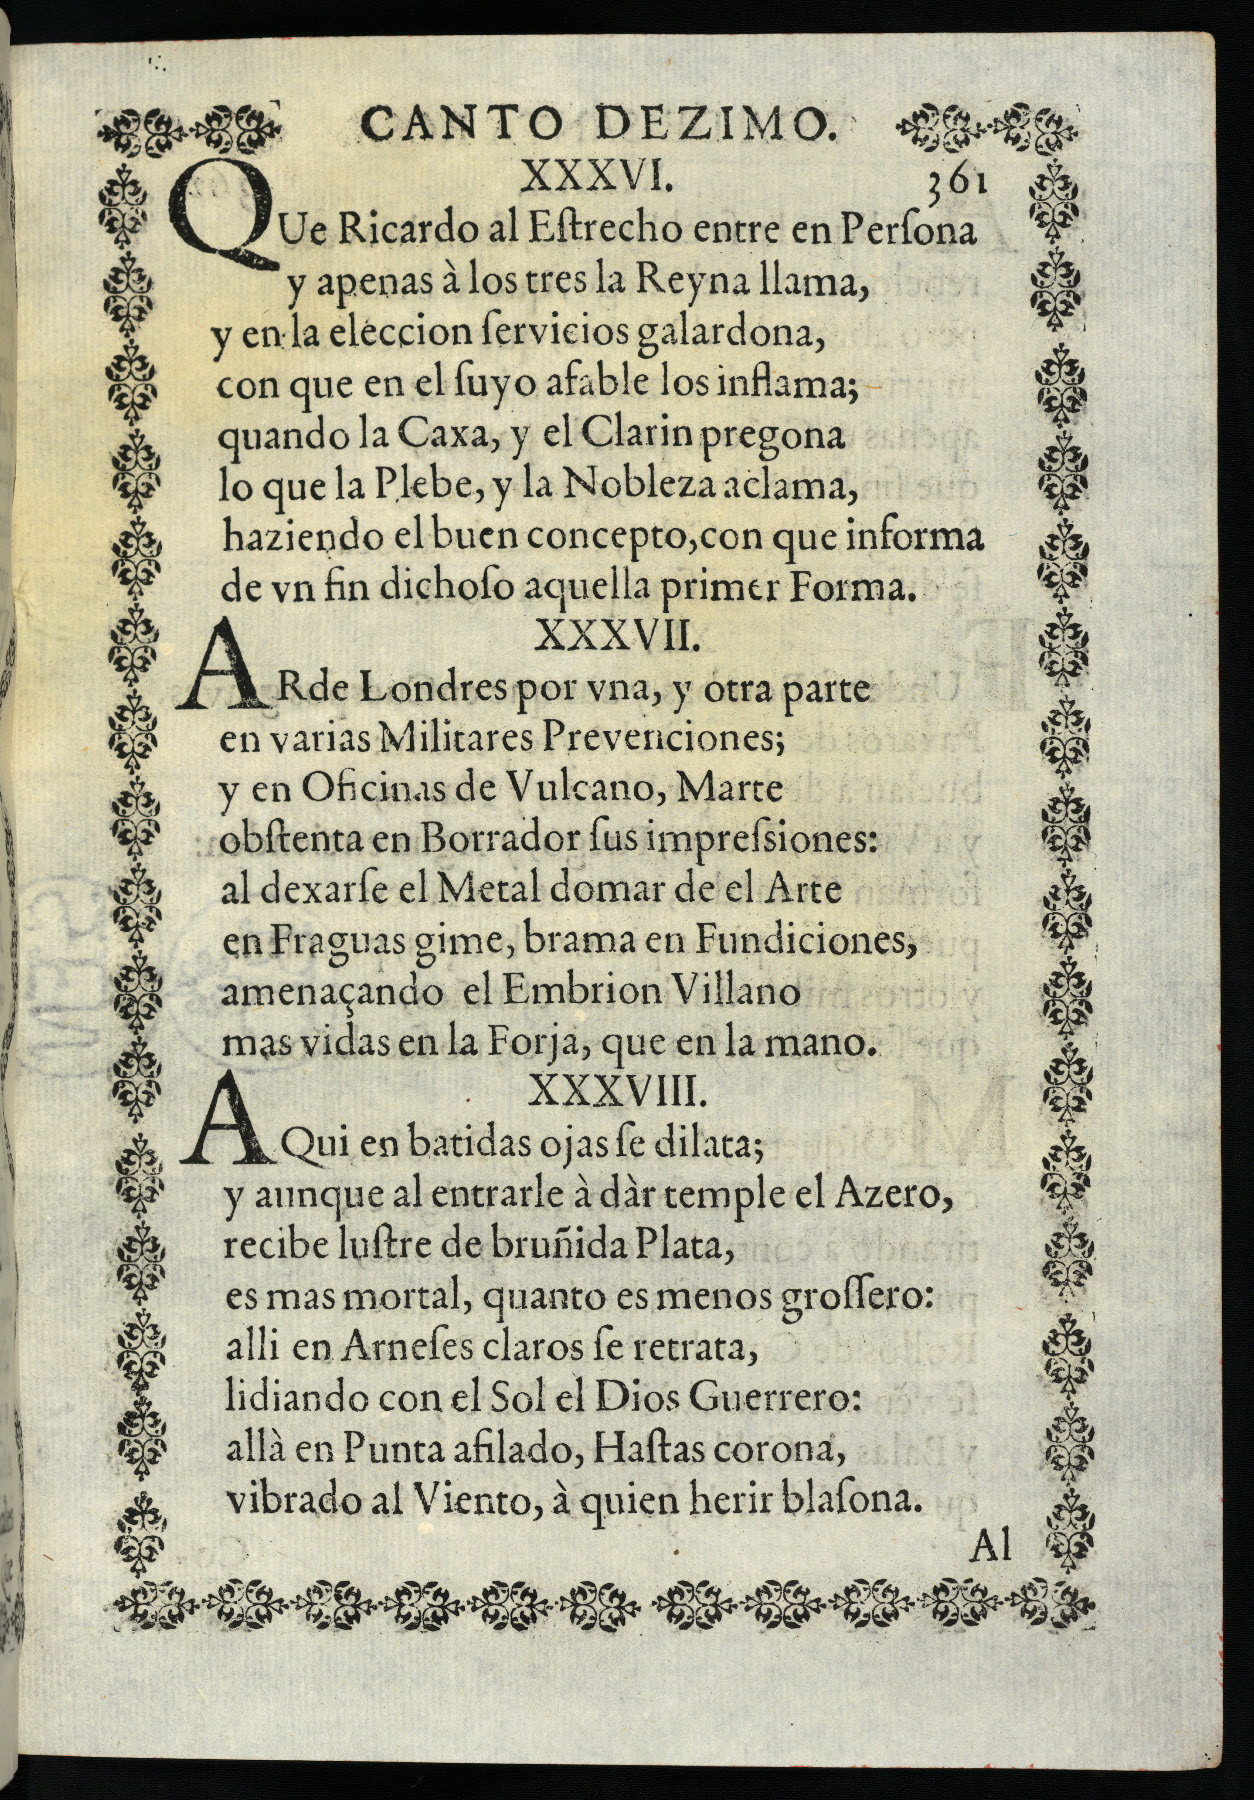 CANTO DEZIMO.
XXXVI. 361
QUe Ricardo al Eſtrecho entre en Perſona
y apenas à los tres la Reyna llama,
y en la eleccion ſervicios galardona,
con que en el ſuyo afable los inflama;
quando la Caxa, y el Clarin pregona
lo que la Plebe, y la Nobleza aclama,
haziendo el buen concepto, con que informa
de vn fin dichoſo aquella primer Forma.
XXXVII.
ARde Londres por vna, y otra parte
en varias Militares Prevenciones;
y en Oficinas de Vulcano, Marte
obſtenta en Borrador ſus impreſsiones:
al dexarſe el Metal domar de el Arte
en Fraguas gime, brama en Fundiciones,
amenaçando el Embrion Villano
mas vidas en la Forja, que en la mano.
XXXVIII.
AQui en batidas ojas ſe dilata;
y aunque al entrarle à dàr temple el Azero,
recibe luſtre de bruñida Plata,
es mas mortal, quanto es menos groſſero:
alli en Arneſes claros ſe retrata,
lidiando con el Sol el Dios Guerrero:
allà en Punta afilado, Haſtas corona,
vibrado al Viento, à quien herir blaſona.
Al